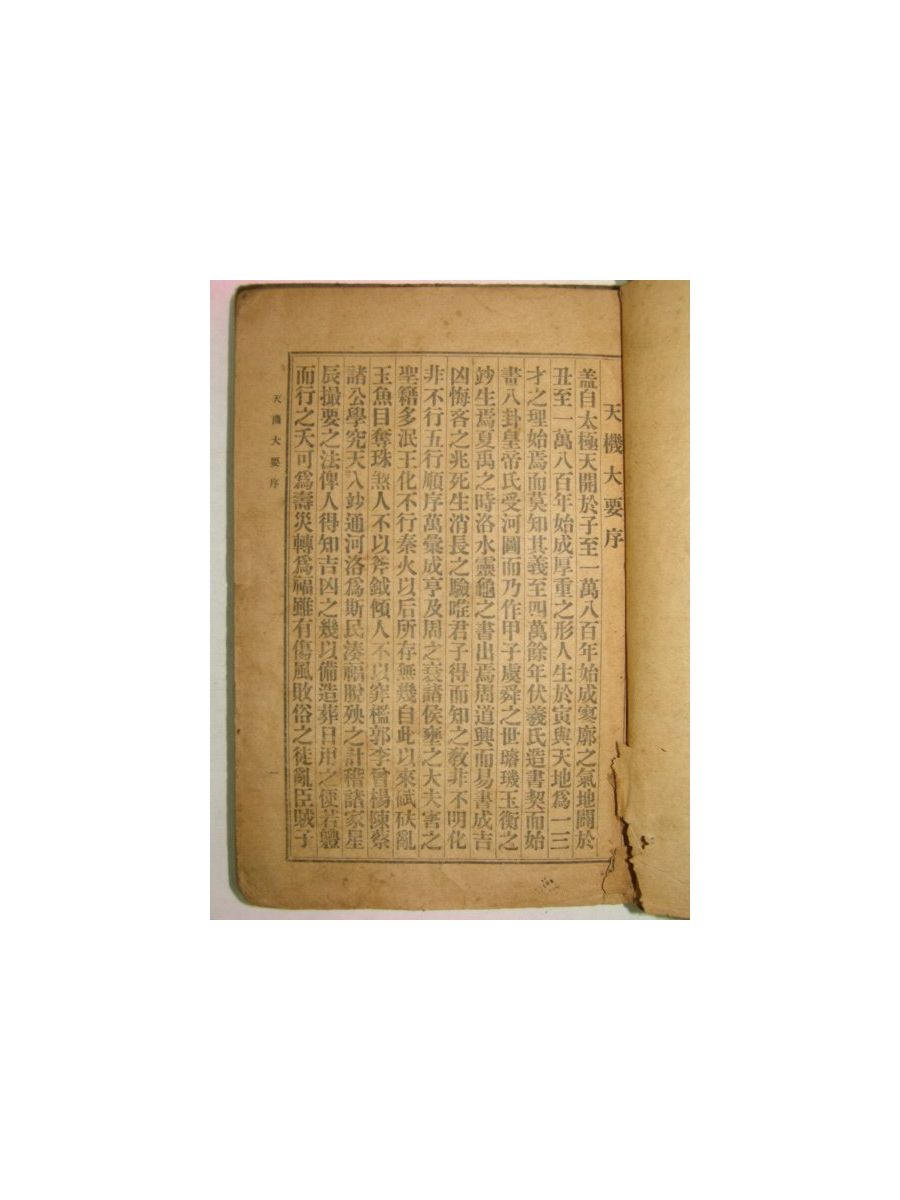 天機大要序
盖自太極天開於子至一萬八百年始成寥廓之氣地闢於
丑至一萬八百年始成厚重之形人生於寅與天地爲一三
才之理始焉而莫知其義至四萬餘年伏羲氏造書契而始
畫八卦皇帝氏受河圖而乃作甲子虞舜之世璿璣玉衡之
竗生焉夏禹之時洛水靈龜之書出焉周道興而易書成吉
凶悔吝之兆死生消長之驗唯君子得而知之敎非不明化
非不行五行順序萬彙成亨及周之衰諸侯壅之大夫害之
聖籍多泯王化不行秦火以后所存無幾自此以來碔砆亂
玉魚目奪珠煞人不以斧鉞傾人不以穽檻郭李曾楊陳蔡
諸公學究天人竗通河洛爲斯民湊福脫殃之計稽諸家星
辰撮要之法俾人得知吉凶之幾以備造葬日用之便若軆
而行之夭可爲壽災轉爲福雖有傷風敗俗之徒亂臣賊子
天機大要序
一